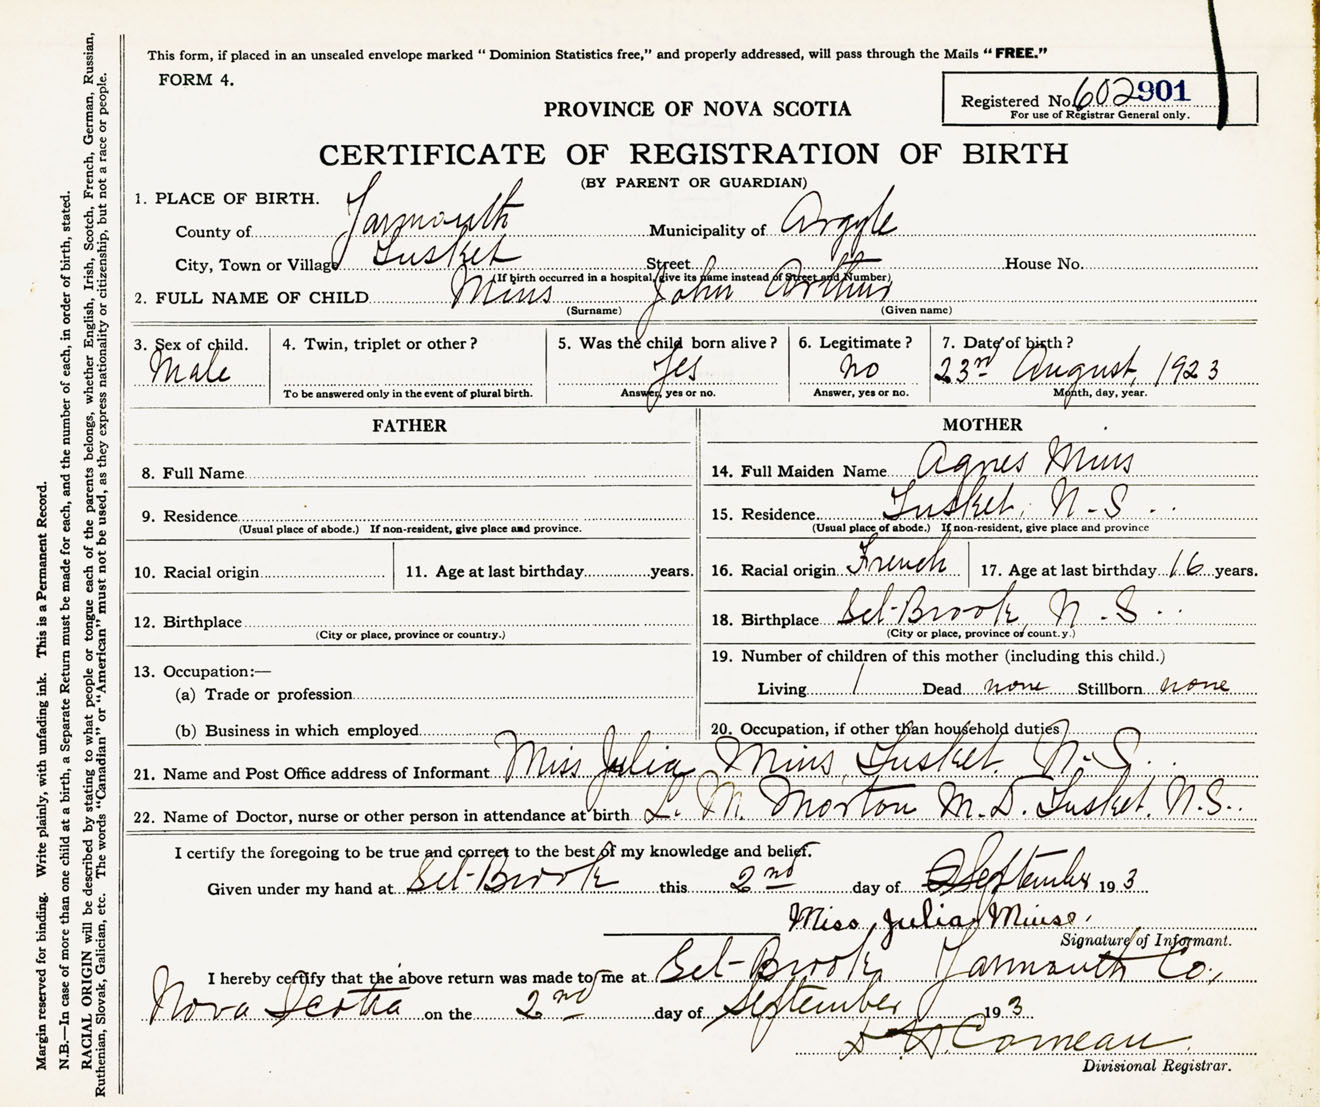 This form, if placed in an unsealed envelope marked " Dominion Statistics free," and properly addressed, will pass through the Mails "FREE."
FORM 4.
Registered No. 602901
For use of Registrar General only.
PROVINCE OF NOVA SCOTIA
CERTIFICATE OF REGISTRATION OF BIRTH
(BY PARENT OR GUARDIAN)
1. PLACE OF BIRTH.
County of Yarmouth Municipality of Argyle
City, Town or Village Tusket Street House No.
(If birth occurred in a hospital, give its name instead of Street and Number)
2. FULL NAME OF CHILD Mius John Arthur
(Surname) (Given name)
3. Sex of child. 4. Twin, triplet or other? 5. Was the child born alive? 6. Legitimate? 7. Date of birth?
Male Yes no 23rd August, 1923
To be answered only in the event of plural birth. Answer, yes or no. Answer, yes or no. Month, day, year.
FATHER
8. Full Name
9. Residence
(Usual place of abode.) If non-resident, give place and province.
10. Racial origin 11. Age at last birthday years.
12. Birthplace
(City or place, province or country.)
13. Occupation:—
(a) Trade or profession
(b) Business in which employed
MOTHER
14. Full Maiden Name Agnes Mius
15. Residence Tusket, N-S
(Usual place of abode.) If non-resident, give place and province
16. Racial origin French 17. Age at last birthday 16 years.
18. Birthplace Sel-Brook, N-S
(City or place, province or count.y.)
19. Number of children of this mother (including this child.)
Living 1 Dead none Stillborn none
20. Occupation, if other than household duties
21. Name and Post Office address of Informant Miss Julia Mius, Tusket, N-S.
22. Name of Doctor, nurse or other person in attendance at birth L. M. Morton M.D. Tusket, N.S.
I certify the foregoing to be true and correct to the best of my knowledge and belief.
Given under my hand at Sel-Brook this 2nd day of September 193
Miss Julia Miuse
Signature of Informant.
I hereby certify that the above return was made to me at Sel-Brook Yarmouth Co.,
Nova Scotia on the 2nd day of September 193
Comeau
Divisional Registrar.
Margin reserved for binding. Write plainly, with unfading ink. This is a Permanent Record.
N.B.—In case of more than one child at a birth, a Separate Return must be made for each, and the number of each, in order of birth, stated.
RACIAL ORIGIN will be described by stating to what people or tongue each of the parents belongs, whether English, Irish, Scotch, French, German, Russian,
Ruthenian, Slovak, Galician, etc. The words "Canadian" or "American" must not be used, as they express nationality or citizenship, but not a race or people.